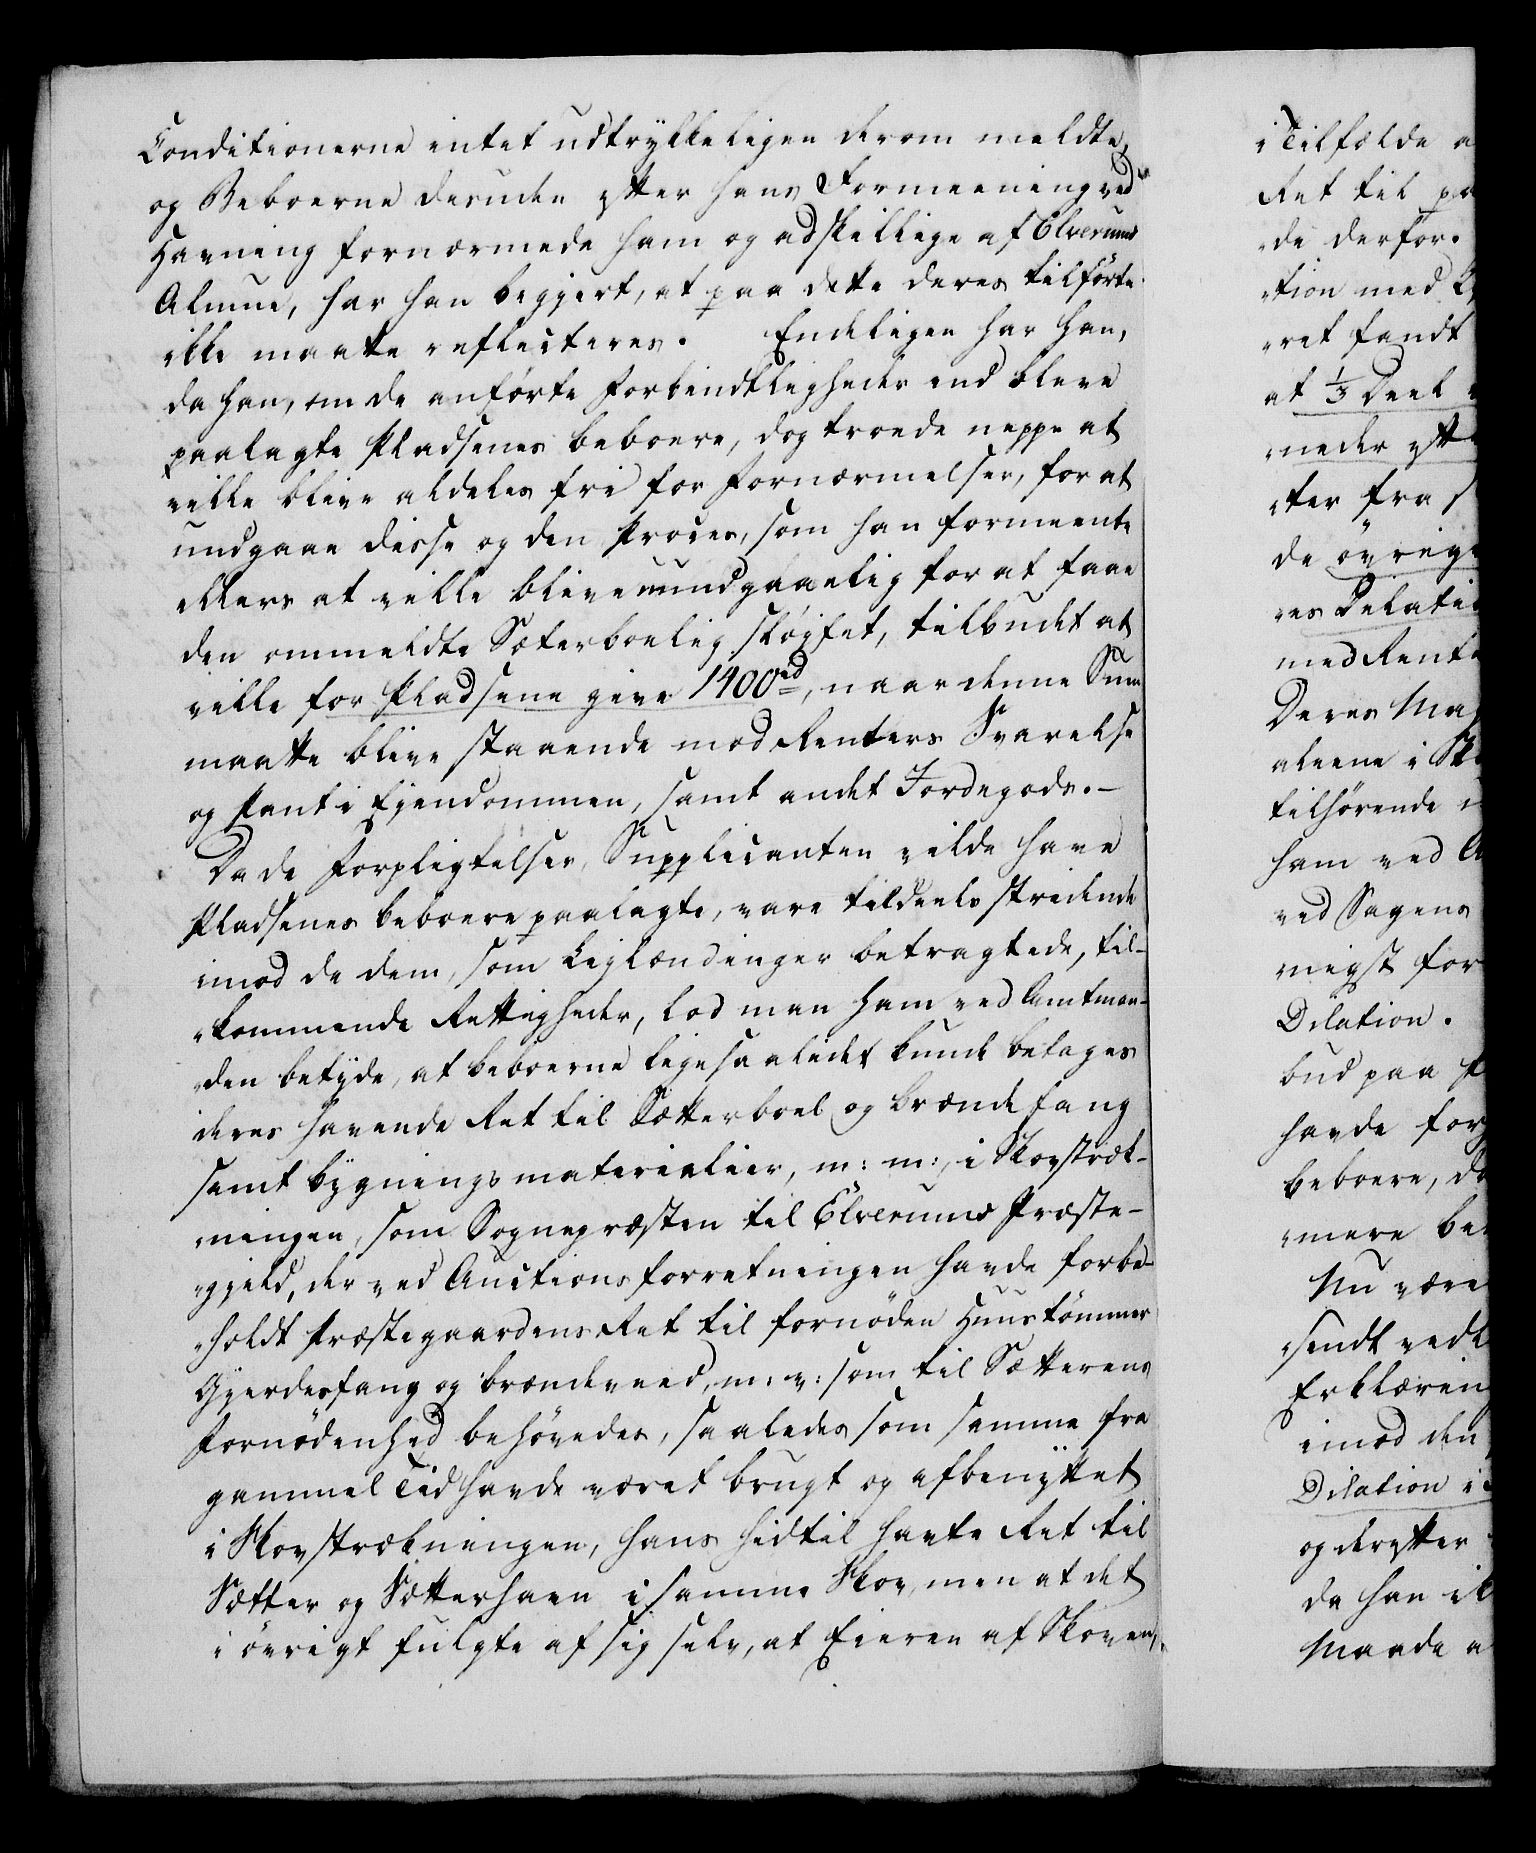 Conditionerne intet udtrykkeligen derom meldte,
og Beboerne desuden efter hans Formeening ved
Havning fornærmede ham og adskillige af Elverums
Almue, har han begjert, at paa dette deres tilførte
ikke maatte reflecteres. Endeligen har han,
da han, om de anførte Forbindtligheder end bleve
paalagte Pladsenes beboere, dog troede neppe at
ville blive aldeles fri for Fornærmelser, for at
undgaae disse og den Proces, som han formeente
ellers at ville blive uundgaaelig for at faae
den ommeldte Sæterboelig sløifet, tilbudet at
ville for Pladsene give 1400 rd, naar denne Sum
maatte blive staaende mod Renters Svarelse
og Pant i Ejendommen, samt andet Jordegods.-
Da de Forpligtelser, Supplicanten vilde have
Pladsenes beboere paalagte, vare tildeels stridende
imod de dem, som Leylændinger betragtede, til-
"kommende Rettigheder, lod man ham ved Amtman-
"den betyde, at beboerne ligesaalidet kunde betages
deres havende Ret til Sætterboel og brændefang
samt bygningsmaterialier, m: m:, i Skovstræk-
"ningen, som Sognepræsten til Elverums Præste-
"gjeld, der ved Auctionsforretningen havde forbe-
"holdt Præstegaardens Ret til fornøden Huustømmer
Gjerdesfang og brændeveed, m: v: som til Sætterens
Fornødenhed behøvedes, saaledes som samme fra
gammel Tid havde været brugt og afbenyttet
i Skovstrækningen, hans hidtil havte Ret til
Sætter og Sætterhavn i samme Skov, men at det
i øvrigt fulgte af sig selv, at Eieren af Skoven,
i Tilfælde a
Ret til pa
"de derfor.
"tion med
"ret fandt
at 1/3 Deel
"neder efte
"ter fra
de øvrige
"es Dilatio
med Rente
Deres Maj
aleene i Sk
tilhørende
ham ved A
ved Sagens
"nigst for
Dilation.
bud paa P
havde for
beboere, da
"mere be
Nu være
"sendt vedk
Erklæring
imod den
Dilation i
og derefter
da han ik
Maade a